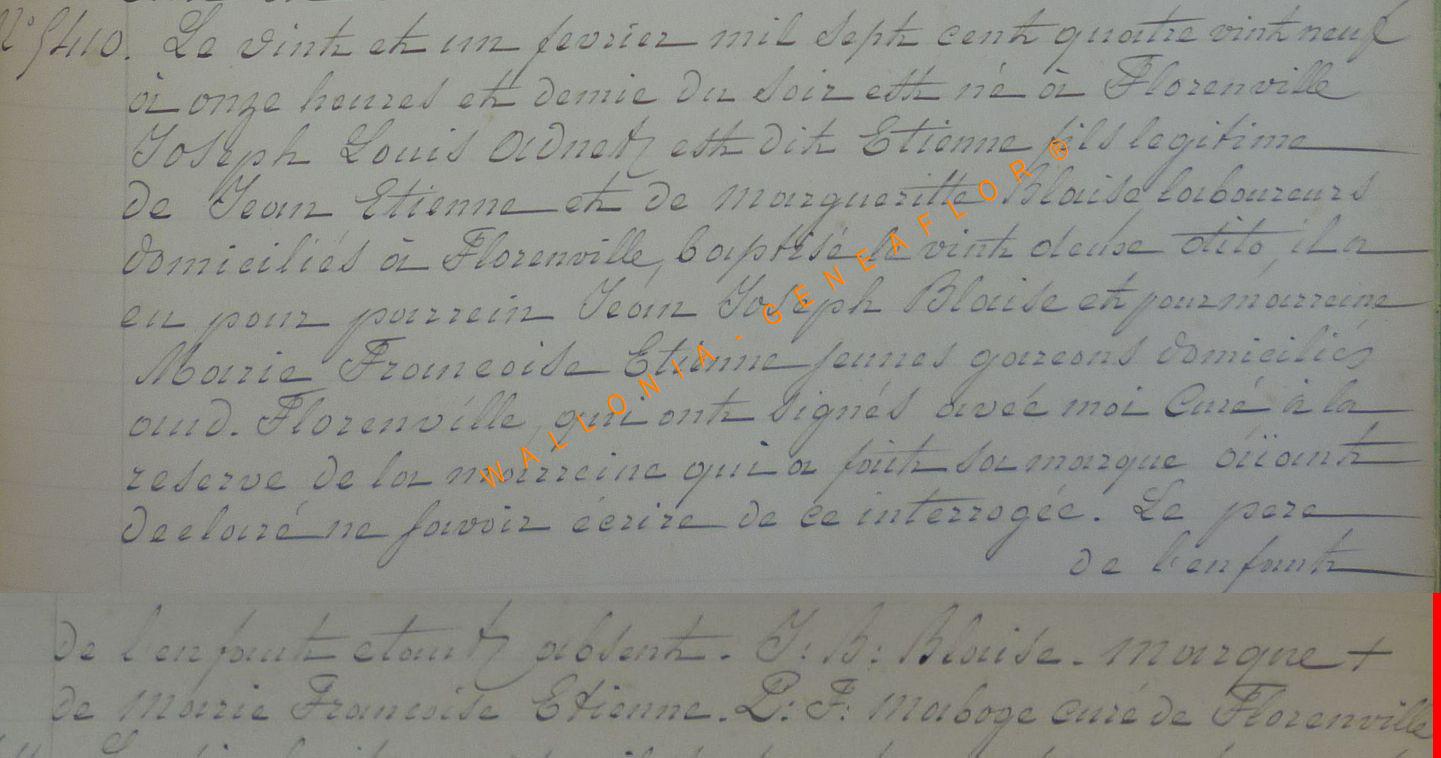 N° 5410. Le vint et un fevrier mil sept cent quatre vint neuf
à onze heures et demie du soir est né à Florenville
Joseph Louis Adnet est dit Etienne fils legitime
de Jean Etienne et de Margueritte Blaise laboureurs
domiciliés à Florenville, baptisé le vint deuse dito, il a
eu pour parrein Jean Joseph Blaise et pour marreine
Marie Francoise Etienne jeunes garcons domiciliés
aud. Florenville, qui ont signés avée moi Curé à la
reserve de la marreine qui a fait sa marque aüant
declaré ne savoir écrire de ce interrogée. Le pere
de l'enfant
de l'enfant etant absent. J: B: Blaise. Marque +
de Marie Francoise Etienne. P: F: Maboge curé de Florenville
WALLONIA - GENEAFLOR ®